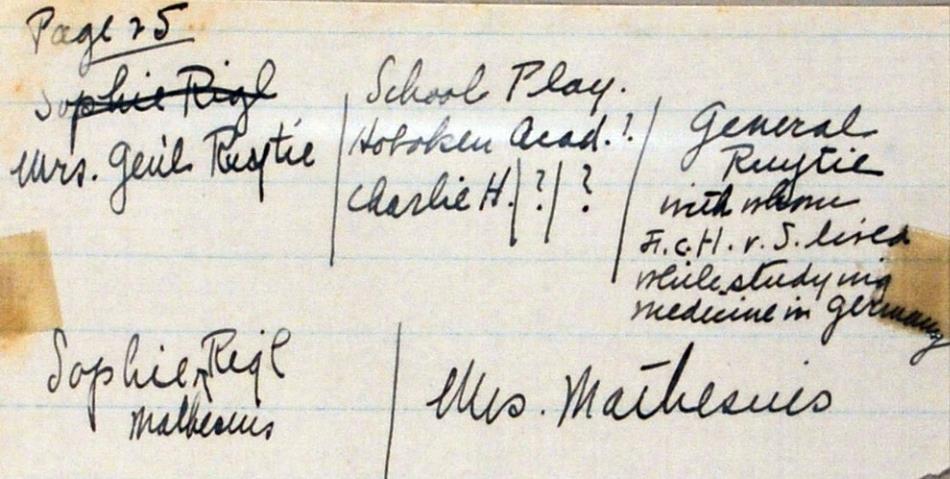 Page 25
Sophie Rigl
Mrs. Genl Ruytie
School Play.
Hoboken Acad.?
Charlie H. | ? | ?
General
Ruytie
with whom
F.C.H. v. S. lived
while studying
medicine in Germany
Sophie Rigl
Mathesius
Mrs. Mathesius